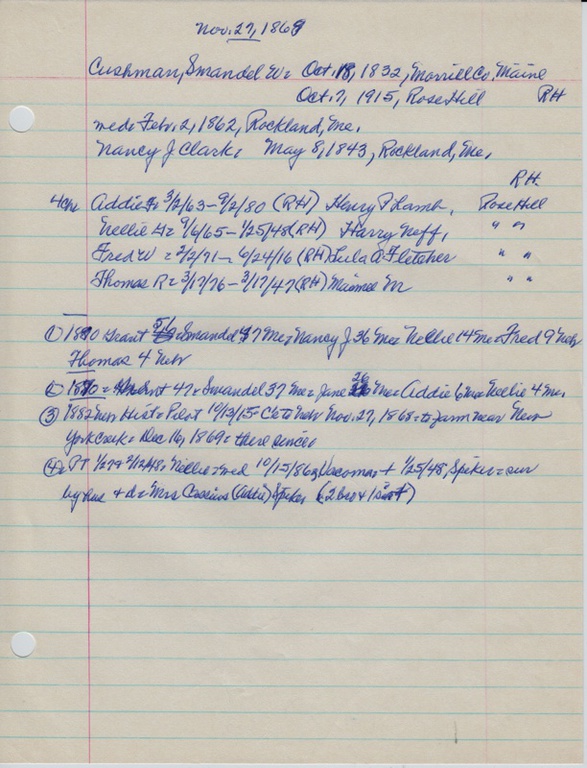 Nov. 27, 1869
Cushman, Swandel W= Oct. 18, 1832, Morrill Co. Maine
Oct. 7, 1915, Rose Hill RH
med= Febr. 2, 1862, Rockland, Me.
Nancy J Clark= May 8, 1843, Rockland, Me.
RH.
4 ch= Addie F= 3/2/63-9/2/80 (RH) Henry P Lamb, Rose Hill
Nellie H= 9/6/65-1/25/48 (RH) Harry Neff, " "
Fred W = 2/2/71- 6/24/16 (RH) Lula A Fletcher " "
Thomas R= 3/17/76-3/17/47 (RH) Maimee M " "
① 1880 Grant 5/6= Swandel 47 Me= Nancy J 36 Me= Nellie 14 Me= Fred 9 Nebr
Thomas 4 Nebr
② 1870= 47= Swandel 37 Me= Jane 26 Me= Addie 6 Me= Nellie 4 Me.
③ 1882 Hist= Pilot 10/13/15= C to Nebr Nov. 27, 1868= to farm near New
York Creek= Dec 16, 1869= there since.
④ PT 1/27 & 2/12/48= Nellie= med 10/15/86 @ Tacoma= + 1/25/48, Spiker= sur
by hus + d= Mrs Cassius (Addie) Spiker (2 bro + 1 sist)